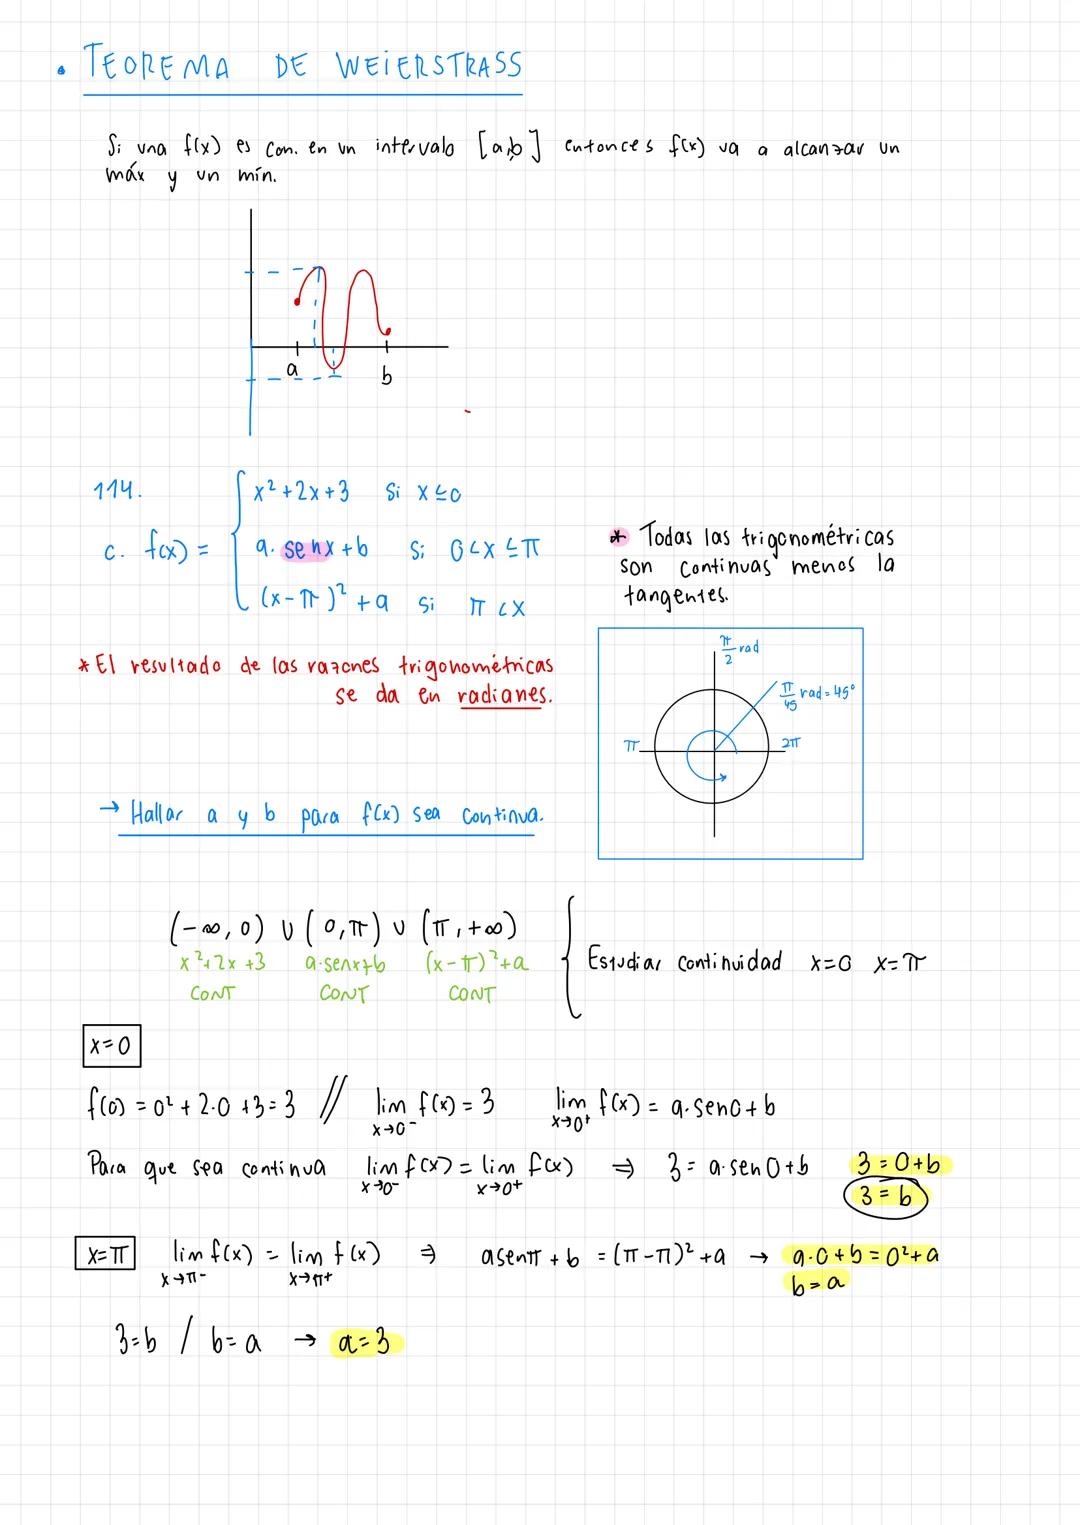 • TEOREMA DE WEIERSTRASS
Si una f(x) es con. en un intervalo [a,b] entonces f(x) va a alcanzar un
máx y un mín.
a
b
114.
c. f(x) =
x² + 2x + 3 si x ≤ 0
a. senx + b si 0 < x ≤ π
(x - π)² + a si π < x
* Todas las trigonométricas
son continuas menos la
tangentes.
* El resultado de las razones trigonométricas
se da en radianes.
π/2 rad
π/45 rad = 45°
π
2π
→ Hallar a y b para f(x) sea continua.
(-∞, 0) ∪ (0, π) ∪ (π, +∞)
x² + 2x + 3 a·senx+b (x - π)² + a
CONT CONT CONT
Estudiar continuidad x=0 x=π
x=0
f(0) = 0² + 2·0 + 3 = 3 // lim x→0⁻ f(x) = 3 lim x→0⁺ f(x) = a·sen0 + b
Para que sea continua lim x→0⁻ f(x) = lim x→0⁺ f(x) ⇒ 3 = a·sen0 + b 3 = 0 + b
3 = b
x=π lim x→π⁻ f(x) = lim x→π⁺ f(x) ⇒ a senπ + b = (π - π)² + a → a·0 + b = 0² + a
b = a
3 = b / b = a → a = 3